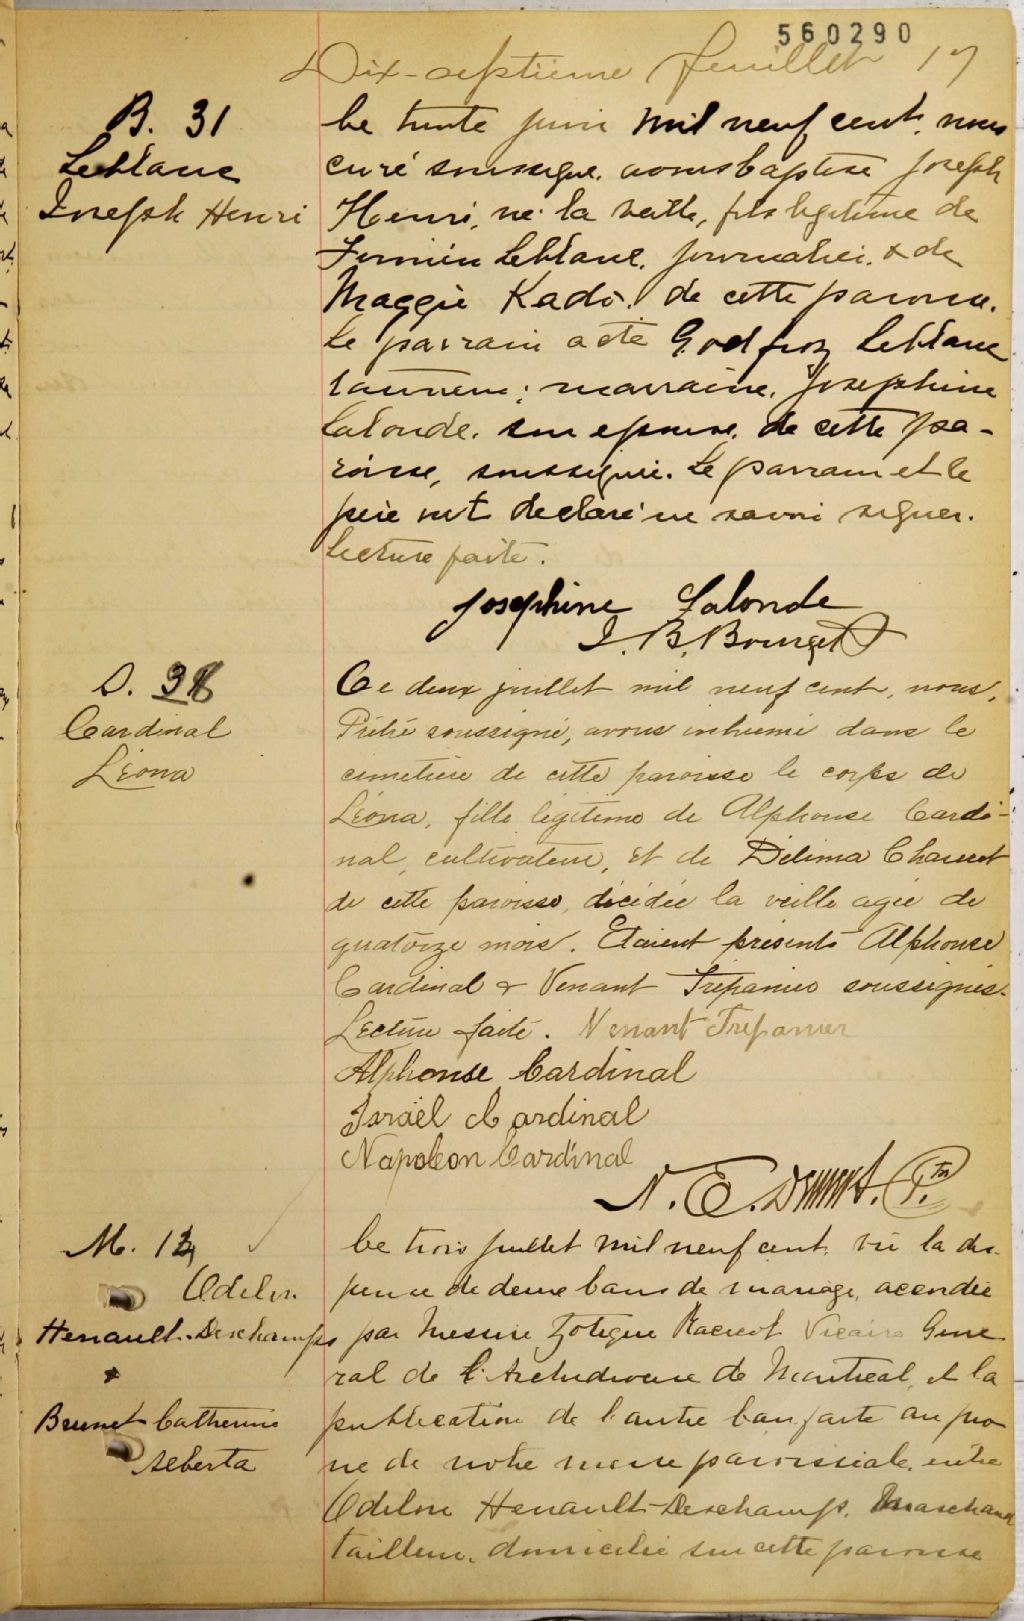 560290
Dix-septième feuillet 17
B. 31
Leblanc
Joseph Henri
Le trente juin mil neuf cent, nous
curé soussigné, avons baptisé Joseph
Henri, né la veille, fils légitime de
Firmin Leblanc, journalier, & de
Maggie Kado, de cette paroisse.
Le parrain a été Godfroy Leblanc
tanneur; marraine, Josephine
Lalonde, son épouse, de cette pa-
roisse, soussignée. Le parrain et le
père ont déclaré ne savoir signer.
Lecture faite.
Josephine Lalonde
J. B. Bourget
S. 38
Cardinal
Léona
Le deux juillet mil neuf cent, nous,
Prêtre soussigné, avons inhumé dans le
cimetière de cette paroisse le corps de
Léona, fille légitime de Alphonse Cardi-
nal, cultivateur, et de Délima
de cette paroisse, décédée la veille agée de
quatorze mois. Etaient présents Alphonse
Cardinal & Venant Trépanier soussignés.
Lecture faite. Venant Trepanier
Alphonse Cardinal
Israël Cardinal
Napoleon Cardinal
N. E. Ptr
M. 13
Odilon
Henault-Deschamps
&
Brunet Catherine
Alberta
Le trois juillet mil neuf cent, vu la dis-
pense de deux bans de mariage, accordée
par Messire Zotique Racicot Vicaire Géné
ral de l'Archidiocèse de Montréal, et la
publication de l'autre ban faite au prô
ne de notre messe paroissiale, entre
Odilon Henault-Deschamps, Marchand
tailleur, domicilié sur cette paroisse